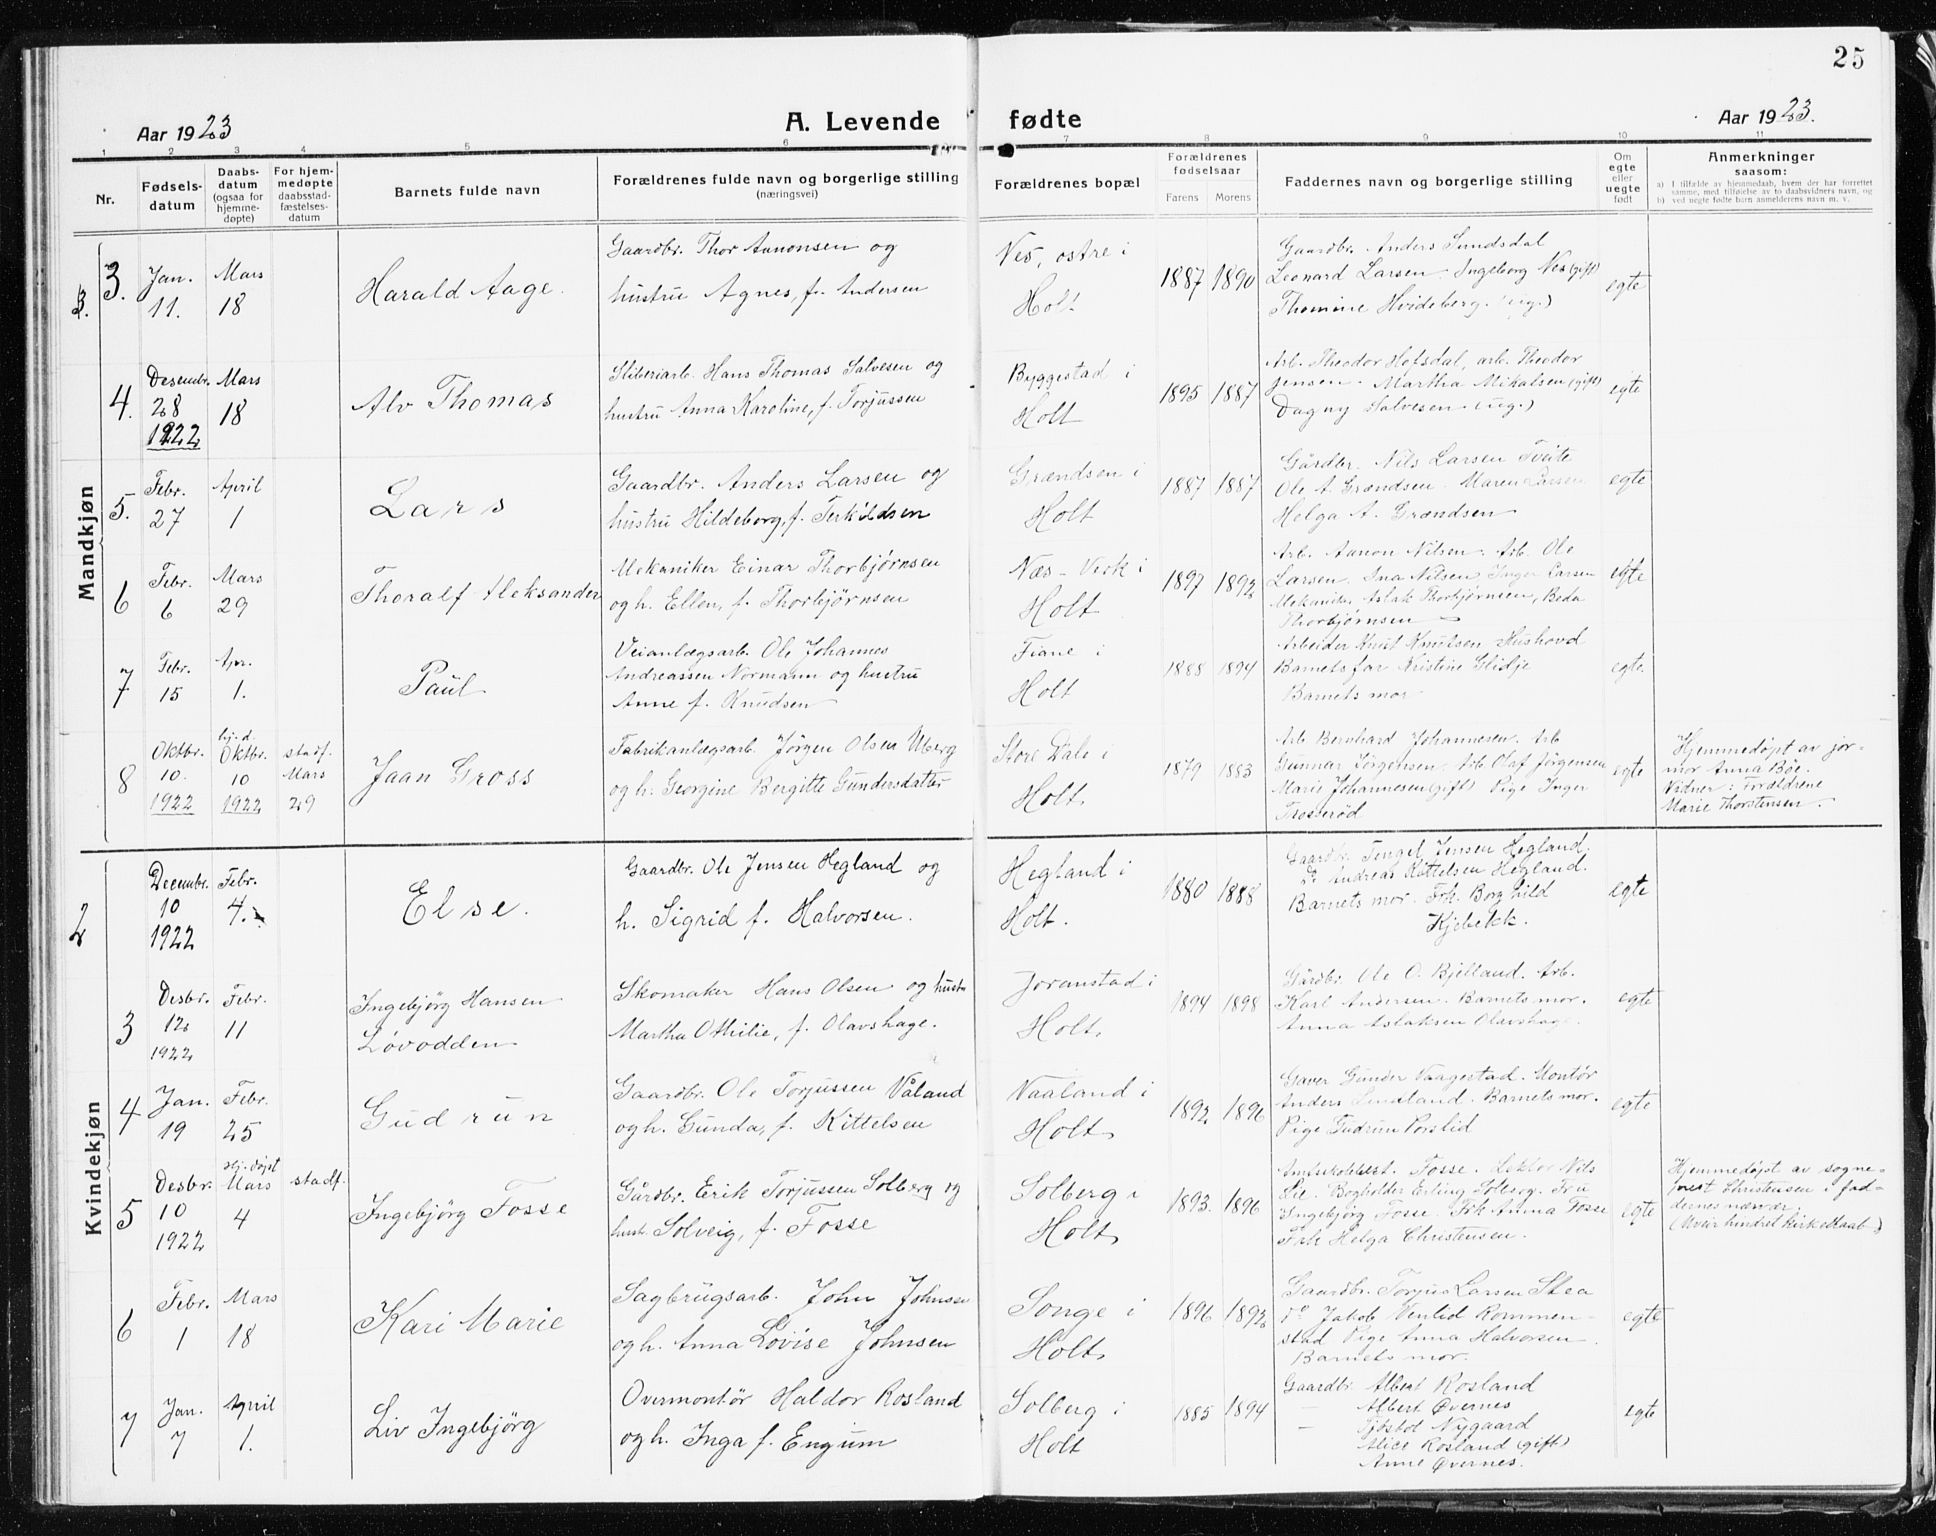 25
Aar 1923
A. Levende fødte
Aar 1923.
1 2 3 4 5 6 7 8 9 10 11
Nr.
Fødsels-
datum
Daabs-
datum
(ogsaa for
hjemme-
døpte)
For hjem-
medøpte
daabsstad-
fæstelses-
datum
Barnets fulde navn
Forældrenes fulde navn og borgerlige stilling
(næringsvei)
Forældrenes bopæl
Forældrenes
fødselsaar
Farens Morens
Faddernes navn og borgerlige stilling
Om
egte
eller
uegte
født
Anmerkninger
saasom:
a) I tilfælde av hjemmedaab, hvem der har forrettet
samme, med tilføielse av to daabsvidners navn, og
b) ved uegte fødte barn anmelderens navn m. v.
Mandkjøn
3.
Jan.
11.
Mars
18
Harald Aage.
Gaardbr. Thor Aanonsen og
hustru Agnes, f. Andersen
Nes, østre i
Holt
1887 1890
Gaardbr. Anders Sundsdal
Leonard Larsen. Ingeborg Nes (gift)
Thomine Hvideberg. (ug.)
egte
4.
Desembr.
28
1922
Mars
18
Alv Thomas
Sliberiarb. Hans Thomas Salvesen og
hustru Anna Karoline, f. Torjussen
Byggestad i
Holt
1895 1887
Arb. Theodor Hofsdal, arb. Theodor
Jensen. Martha Mikalsen (gift)
Dagny Salvesen (ug.)
egte
5.
Febr.
27
April
1
Lars
Gaardbr. Anders Larsen og
hustru Hildeborg, f. Terkildsen
Grændsen i
Holt
1887 1887
Gårdbr. Nils Larsen Tveite
Ole A. Grændsen. Maren Larsen
Helga A. Grændsen
egte
6
Febr.
6
Mars
29
Thoralf Aleksander
Mekaniker Einar Thorbjørnsen
og h. Ellen, f. Thorbjørnsen
Næs-Verk i
Holt
1897 1892
Arb. Aanon Nilsen. Arb. Ole
Larsen. Ina Nilsen, Inger Larsen
Mekanike. Aslak Thorbjørnsen, Beda
Thorbjørnsen
egte
7
Febr.
15
Apr.
1.
Paul
Veianlægsarb. Ole Johannes
Andreassen Normann og hustru
Anne f. Knudsen
Fiane i
Holt
1888 1894
Arbeider Knut Knutsen Hushovd
Barnets far Kristine Glidje
Barnets mor
egte.
8
Oktbr.
10.
1922
hj.d.
Oktbr.
10
1922
stadf.
Mars
29
Jaan Gross
Fabrikanlægsarb. Jørgen Olsen Uberg
og h. Georgine Bergitte Gundersdatter
Store Dale i
Holt
1879 1883
Arb Bernhard Johannesen. Arb
Gunnar Jörgensen. Arb Olaf Jørgensen
Marie Johannesen (gift) Pige Inger
Trosserød
egte
Hjemmedøpt av jor-
mor Anna Bøe.
Vidner: Forældrene
Marie Thorstensen
Kvindekjøn
2
Decembr.
10
1922
Febr.
4.
Else.
Gaardbr. Ole Jensen Hegland og
h. Sigrid f. Halvorsen.
Hegland i
Holt.
1880 1888
Gaardbr. Tengel Jensen Hegland.
do Andreas Kittelsen Hegland.
Barnets mor. Frk. Borghild
Kjebekk.
egte
3
Desbr.
12
1922
Febr.
11
Ingebjörg Hansen
Løvodden
Skomaker Hans Olsen og hustr
Martha Othilie, f. Olavshage.
Joranstad i
Holt
1894 1898
Gårdbr. Ole O. Bjelland. Arb.
Karl Andersen. Barnets mor.
Anna Aslaksen Olavshage.
egte
4
Jan.
19
Febr.
25
Gudrun
Gaardbr. Ole Torjussen Våland
og h. Gunda, f. Kittelsen
Vaaland i
Holt
1892 1896
Gaver Gunder Vaagestad. Montør
Anders Lindland. Barnets mor.
Pige Gudrun Vorslid
egte
5
Desbr.
10
1922
Hj.døpt
Mars
4
stadf.
Ingebjörg Fosse
Gårdbr. Eerik Torjussen Solberg og
hust. Solveig, f. Fosse
Solberg i
Holt
1893. 1896
Fosse. Lektor Nils
Lie. Bogholder Erling Solberg. Fru
Ingebjørg Fosse. Frk Anna Fosse
Frk Helga Christensen.
egte
Hjemmedøpt av sogne-
prest Christensen i fad-
dernes nærvær.
(Uveir hindret kirkedaab.)
6
Febr.
1
Mars
18
Kari Marie
Sagbrugsarb. John Johnsen
og h. Anna Lovise Johnsen
Songe i
Holt
1896 1892
Gaardbr. Torjus Larsen Stea
do Jakob Venlid Rommen-
stad Pige Anna Halvorsen
Barnets mor.
egte
7
Jan.
7
April
1.
Liv Ingebjörg
Overmontør Haldor Rosland
og h. Inga f. Engum
Solberg i
Holt
1885 1894
Gaardbr. Albert Rosland
— Albert Øvernes
— Tjöstol Nygaard
Alice Rosland (gift)
Anne Øvernes.
egte